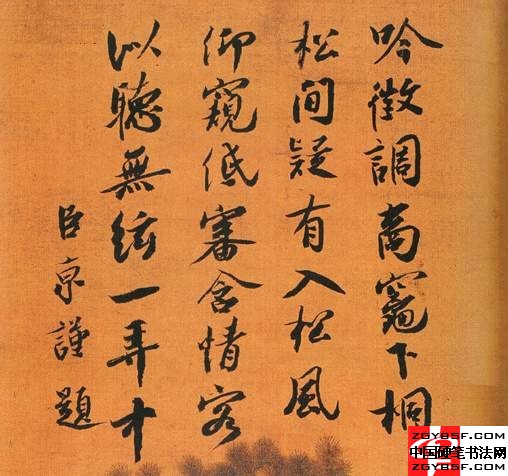 吟徵調商竈下桐
松間疑有入松風
仰窺低審含情客
似聽無絃一弄中
臣京謹題
ZGYBSF.COM
中国硬笔书法网
ZGYBSF.COM